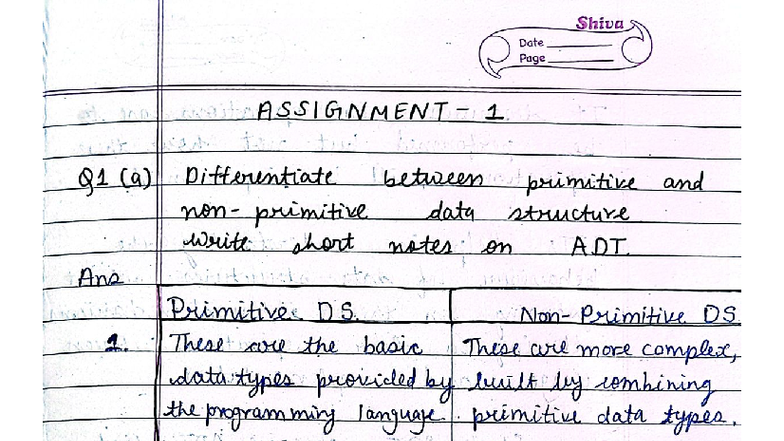 Shiva
Date
Page
ASSIGNMENT - 1
Q1 (a) Differentiate between primitive and
non-primitive data structure
write short notes on ADT.
Ans
Primitive DS. Non-Primitive DS
1. These are the basic These are more complex,
data types provided by built by combining
the programming language. primitive data types.